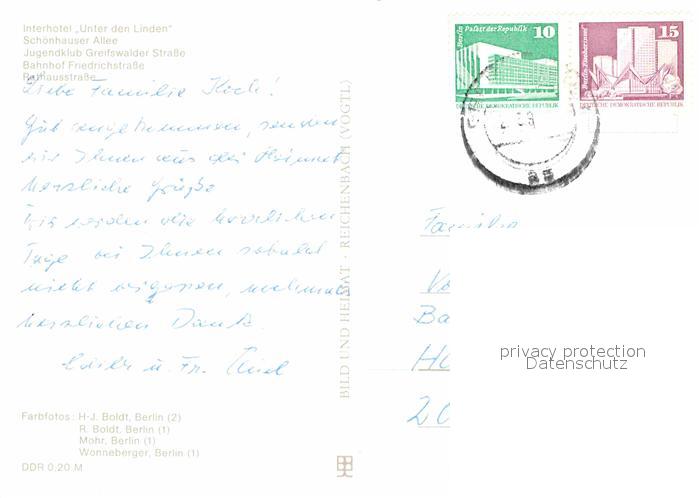 Interhotel „Unter den Linden"
Schönhauser Allee
Jugendklub Greifswalder Straße
Bahnhof Friedrichstraße
Rathausstraße
Liebe Familie Koch!
Gut angekommen, senden
wir Ihnen aus der Heimat
herzliche Grüße
Wir werden die herrlichen
Tage bei Ihnen sobald
nicht vergessen, nochmals
herzlichen Dank.
u. Fr.
Farbfotos: H-J. Boldt, Berlin (2)
R. Boldt, Berlin (1)
Mohr, Berlin (1)
Wonneberger, Berlin (1)
DDR 0,20 M
BILD UND HEIMAT · REICHENBACH (VOGTL)
Berlin Palast der Republik
10
DEUTSCHE DEMOKRATISCHE REPUBLIK
Berlin Fischerinsel
15
DEUTSCHE DEMOKRATISCHE REPUBLIK
Familie
Ba
privacy protection
Datenschutz